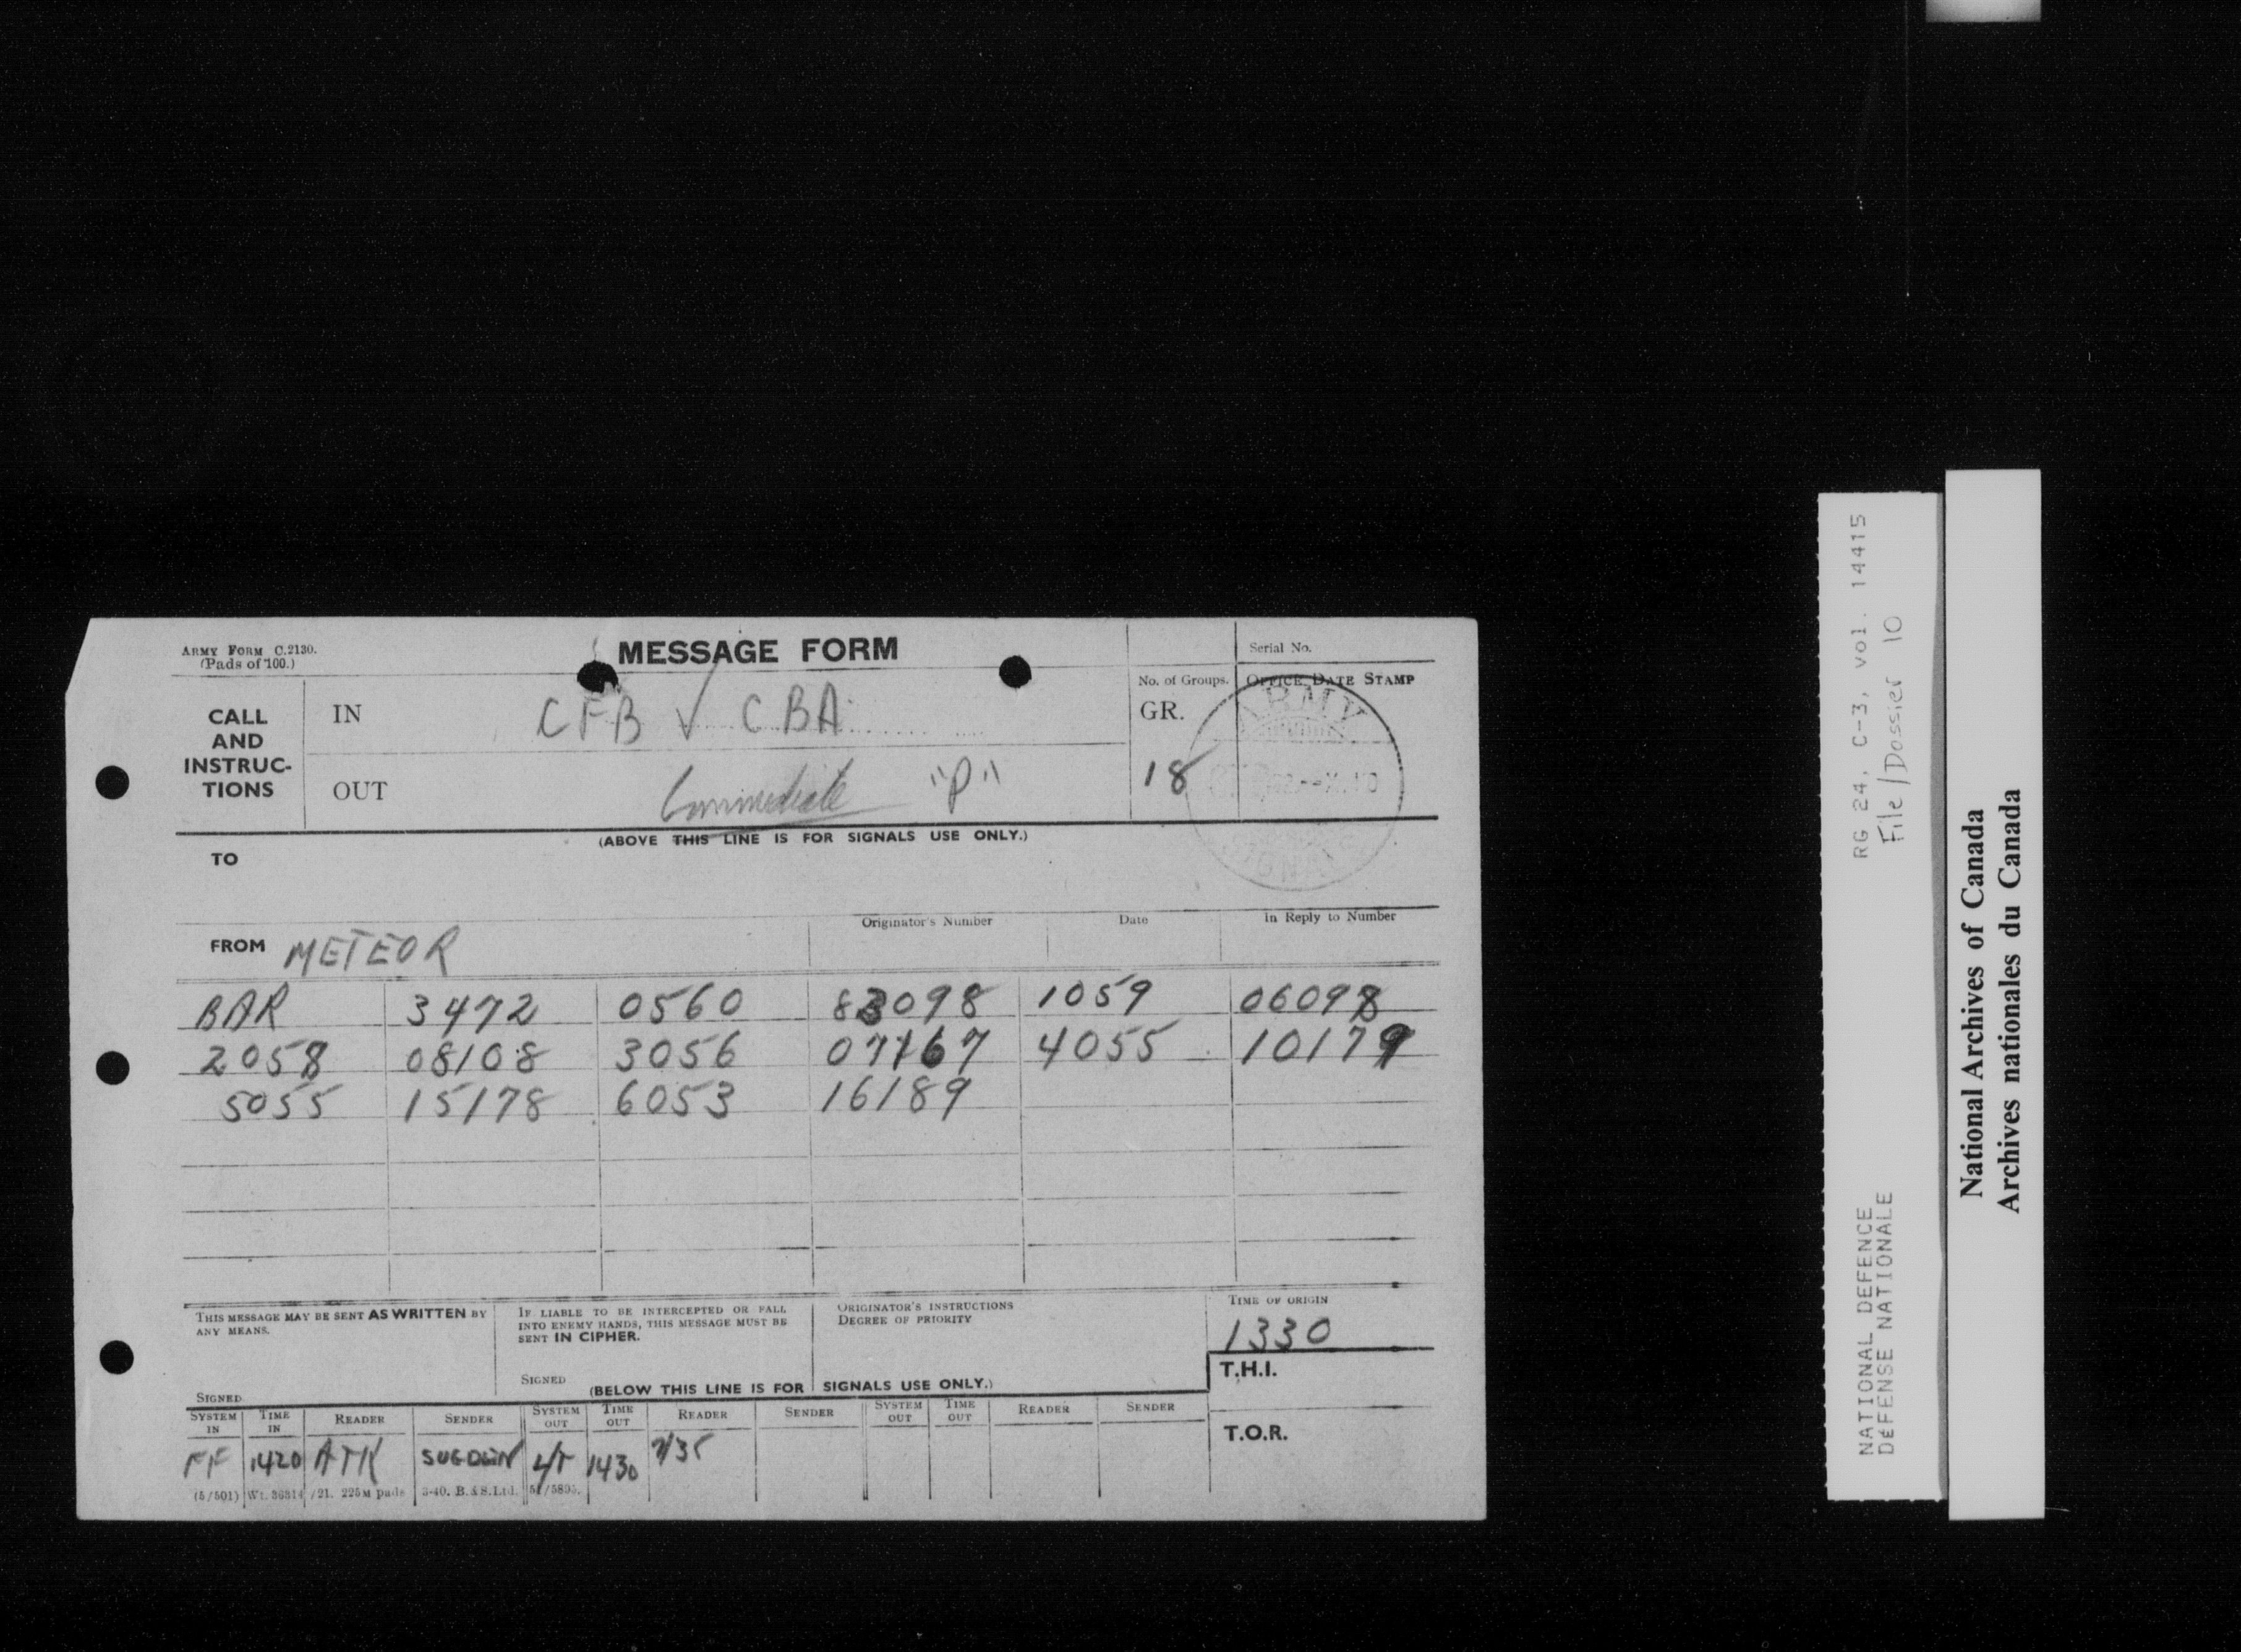 ARMY FORM C.2130.
(Pads of 100.)
MESSAGE FORM
Serial No.
CALL AND INSTRUC-TIONS
IN
CFB V CBA
No. of Groups.
GR.
18
OFFICE DATE STAMP
ARMY
SIGNALS
OUT
Immediate "P"
(ABOVE THIS LINE IS FOR SIGNALS USE ONLY.)
TO
FROM METEOR
Originator's Number
Date
In Reply to Number
BAR 3472 0560 83098 1059 06098
2058 08108 3056 07167 4055 10179
5055 15178 6053 16189
THIS MESSAGE MAY BE SENT AS WRITTEN BY
ANY MEANS.
SIGNED
IF LIABLE TO BE INTERCEPTED OR FALL
INTO ENEMY HANDS, THIS MESSAGE MUST BE
SENT IN CIPHER.
SIGNED
ORIGINATOR'S INSTRUCTIONS
DEGREE OF PRIORITY
TIME OF ORIGIN
1330
T.H.I.
T.O.R.
(BELOW THIS LINE IS FOR SIGNALS USE ONLY.)
SYSTEM IN TIME IN READER SENDER SYSTEM OUT TIME OUT READER SENDER SYSTEM OUT TIME OUT READER SENDER
FF 1420 ATK SUGDEN L/T 1430
(5/501) Wt. 36314/21. 225M pads 3-40. B.&S.Ltd.
RG 24, C-3, vol. 14415
File/Dossier 10
NATIONAL DEFENCE
DEFENSE NATIONALE
National Archives of Canada
Archives nationales du Canada